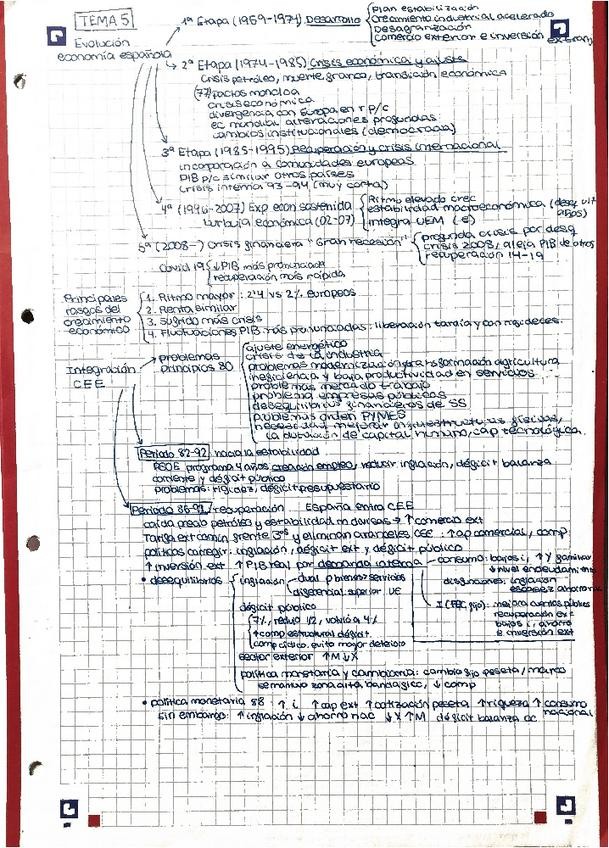 TEMA 5
Evolución
economía española
1ª Etapa (1959-1974) Desarrollo
Plan estabilización
Crecimiento industrial acelerado
Desagrarización
Comercio exterior e inversión extranj
2ª Etapa (1974-1985) Crisis económica y ajuste
Crisis petróleo, muerte franco, transición económica
(77) pactos moncloa
crisis económica
divergencia con Europa en r p/c
ec mundial alteraciones profundas
cambios institucionales (democracia)
3ª Etapa (1985-1995) Recuperación y crisis internacional
incorporación a comunidades europeas
PIB p/c similar otros países
Crisis intensa 93-94 (muy corta)
4ª (1996-2007) Exp econ sostenida
burbuja económica (02-07)
Ritmo elevado crec
estabilidad macroeconómica (deseq
integra UEM (€)
5ª (2008-) Crisis financiera "Gran recesión"
profunda crisis por deseq
crisis 2008, aleja PIB de otros
recuperación 14-19
Covid 19
↓PIB más pronunciada
recuperación más rápida
Principales
rasgos del
crecimiento
económico
1. Ritmo mayor: 2'4 vs 2% europeos
2. Renta similar
3. Sufrido más crisis
4. Fluctuaciones PIB más pronunciadas: liberación tardía y con rigideces.
Integración
CEE
problemas
principios 80
ajuste energético
crisis de la industria
problemas modernización y transformación agricultura
ineficiencia y baja productividad en servicios
problemas mercado trabajo
problema empresas públicas
desequilibrios financieros de SS
problemas orden PYMES
necesidad mejorar infraestructuras físicas,
la dotación de capital humano, cap tecnológica.
Período 82-92 hacia la estabilidad
PSOE programa 4 años creación empleo, reducir inflación, déficit balanza
corriente y déficit público
problemas: rigidez, déficit presupuestario
Período 86-91 recuperación España entra CEE
caída precio petróleo y estabilidad monedas → ↑ comercio ext
Tarifa ext común frente 3ºs y eliminan aranceles CEE: ↑ap comercial, comp
políticas corregir: inflación, déficit ext y déficit público
↑ inversión ext ↑ PIB real por demanda interna
consumo: bajos i, ↑ Y familias
↓ nivel endeudamiento
disfunciones: inflación
escasez ahorro
I (FBC fijo): mejora cuentas públicas
recuperación ext
bajos i, ahorro
e inversión ext
• desequilibrios
inflación
dual p bienes servicios
diferencial superior UE
déficit público
7%, redujo 1/2, volvió a 4%
↑comp estructural déficit
comp cíclico evitó mayor deterioro
sector exterior ↑M ↓X
política monetaria y cambiaria: cambio fijo peseta/marco
semanitivo banda flc, ↓ comp
• política monetaria 88 ↑ i, ↑ cap ext ↑ cotización peseta ↑ riqueza ↑ consumo
nacional
sin embargo: ↑ inflación ↓ ahorro nac ↓X ↑M déficit balanza cc